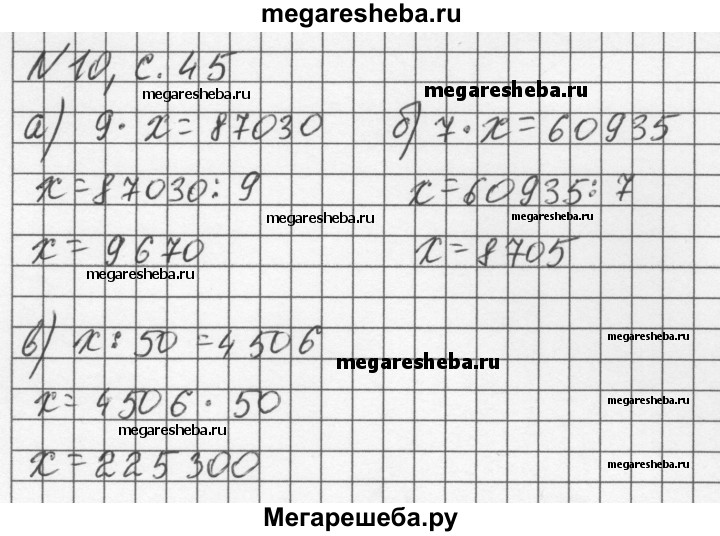 megaresheba.ru
N 10, с. 45
megaresheba.ru
megaresheba.ru
а) 9 · x = 87030
б) 7 · x = 60935
x = 87030 : 9
x = 60935 : 7
megaresheba.ru
megaresheba.ru
x = 9670
x = 8705
megaresheba.ru
в) x : 50 = 4506
megaresheba.ru
megaresheba.ru
x = 4506 · 50
megaresheba.ru
megaresheba.ru
x = 225300
megaresheba.ru
Мегарешеба.ру